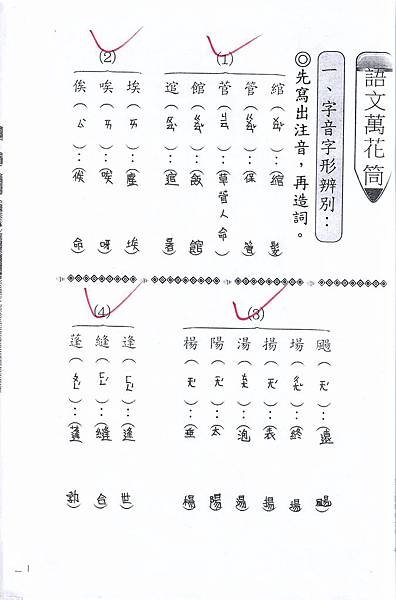 語文萬花筒
一、字音字形辨別：
◎先寫出注音，再造詞。
(1)
綰（ㄨㄢˇ）：（綰髮）
管（ㄍㄨㄢˇ）：（保管）
菅（ㄐㄧㄢ）：（草菅人命）
館（ㄍㄨㄢˇ）：（飯館）
逭（ㄏㄨㄢˋ）：（逭暑）
(2)
埃（ㄞ）：（塵埃）
唉（ㄞ）：（唉呀）
俟（ㄙˋ）：（俟命）
(3)
颺（ㄧㄤˊ）：（遠颺）
場（ㄔㄤˇ）：（終場）
揚（ㄧㄤˊ）：（表揚）
湯（ㄊㄤ）：（泡湯）
陽（ㄧㄤˊ）：（太陽）
楊（ㄧㄤˊ）：（垂楊）
(4)
逢（ㄈㄥˊ）：（逢世）
縫（ㄈㄥˊ）：（縫合）
蓬（ㄆㄥˊ）：（蓬勃）